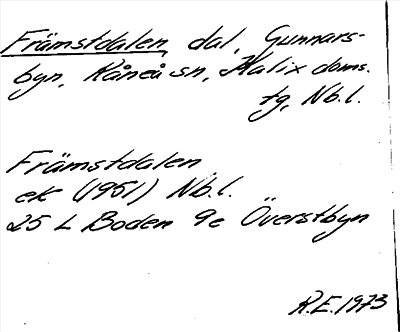 Främstdalen, dal, Gunnars-
byn, Råneå sn, Kalix doms.
tg, Nb.l.
Främstdalen
ek (1951) Nb.l.
25 L Boden 9e Överstbyn
R.E. 1973